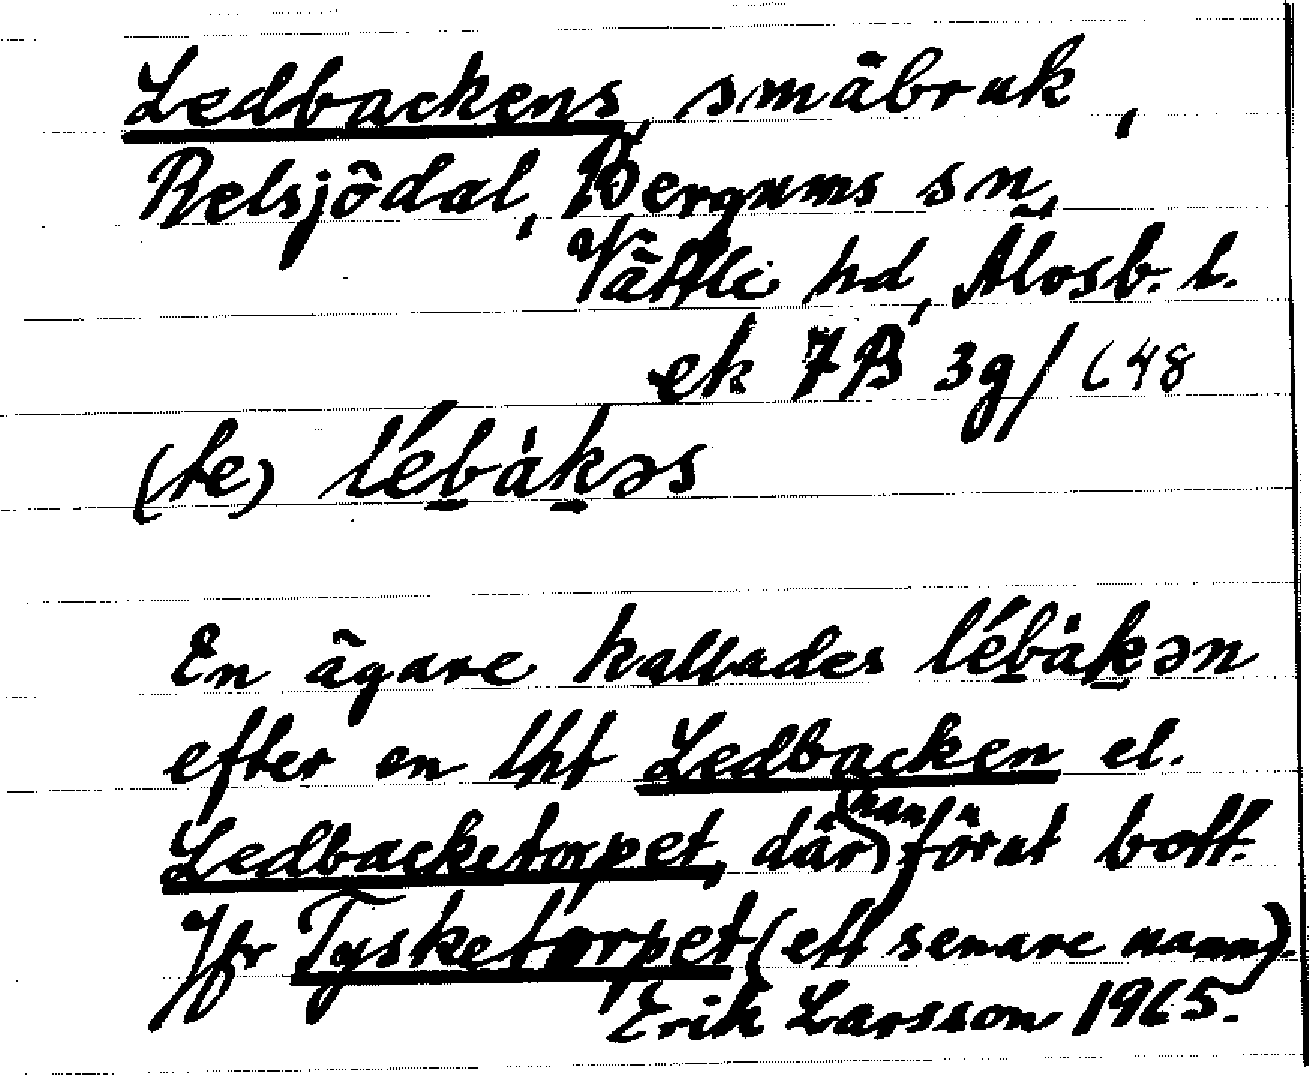 Ledbackens, småbruk,
Relsjödal, Bergums sn,
Vättle hd, Älvsb. l.
ek 7B 3g/648
(te) lébåkəs
En ägare kallades lébåkən
efter en lht Ledbacken el.
Ledbacketorpet, där han förut bott.
Jfr Tysketorpet (ett senare namn).
Erik Larsson 1965.